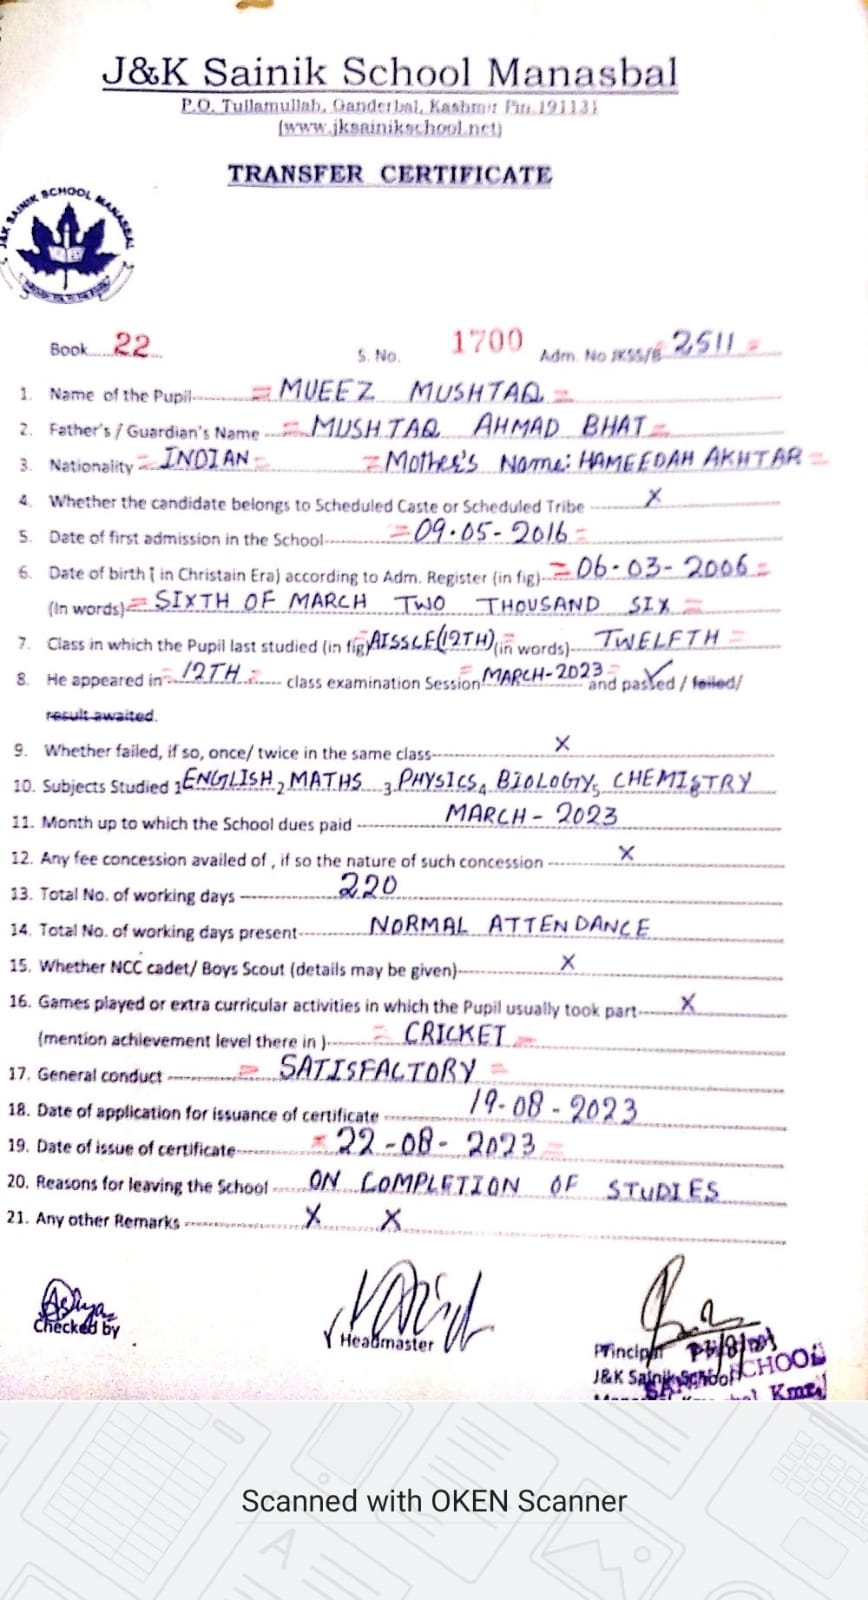 J&K Sainik School Manasbal
P.O. Tullamullah, Ganderbal, Kashmir Pin.191131
(www.jksainikschool.net)
TRANSFER CERTIFICATE
J&K SAINIK SCHOOL MANASBAL
Book 22 S. No. 1700 Adm. No JKSS/B 2511 =
1. Name of the Pupil = MUEEZ MUSHTAQ =
2. Father's / Guardian's Name = MUSHTAQ AHMAD BHAT =
3. Nationality = INDIAN = = Mother's Name: HAMEEDAH AKHTAR =
4. Whether the candidate belongs to Scheduled Caste or Scheduled Tribe X
5. Date of first admission in the School = 09.05-2016 =
6. Date of birth ( in Christain Era) according to Adm. Register (in fig) = 06.03-2006 =
(In words) = SIXTH OF MARCH TWO THOUSAND SIX =
7. Class in which the Pupil last studied (in fig) AISSCE(12TH) (in words) TWELFTH =
8. He appeared in = 12TH = class examination Session = MARCH-2023 = and passed / failed/
result awaited.
9. Whether failed, if so, once/ twice in the same class X
10. Subjects Studied 1 ENGLISH, 2 MATHS 3 PHYSICS, 4 BIOLOGY, 5 CHEMISTRY 6
11. Month up to which the School dues paid MARCH - 2023
12. Any fee concession availed of , if so the nature of such concession X
13. Total No. of working days 220
14. Total No. of working days present NORMAL ATTENDANCE
15. Whether NCC cadet/ Boys Scout (details may be given) X
16. Games played or extra curricular activities in which the Pupil usually took part X
(mention achievement level there in ) = CRICKET =
17. General conduct = SATISFACTORY =
18. Date of application for issuance of certificate 19-08-2023
19. Date of issue of certificate = 22-08-2023 =
20. Reasons for leaving the School ON COMPLETION OF STUDIES
21. Any other Remarks X X
Checked by
Headmaster
Principal
J&K Sainik School
SCHOOL
Kmr.
Scanned with OKEN Scanner